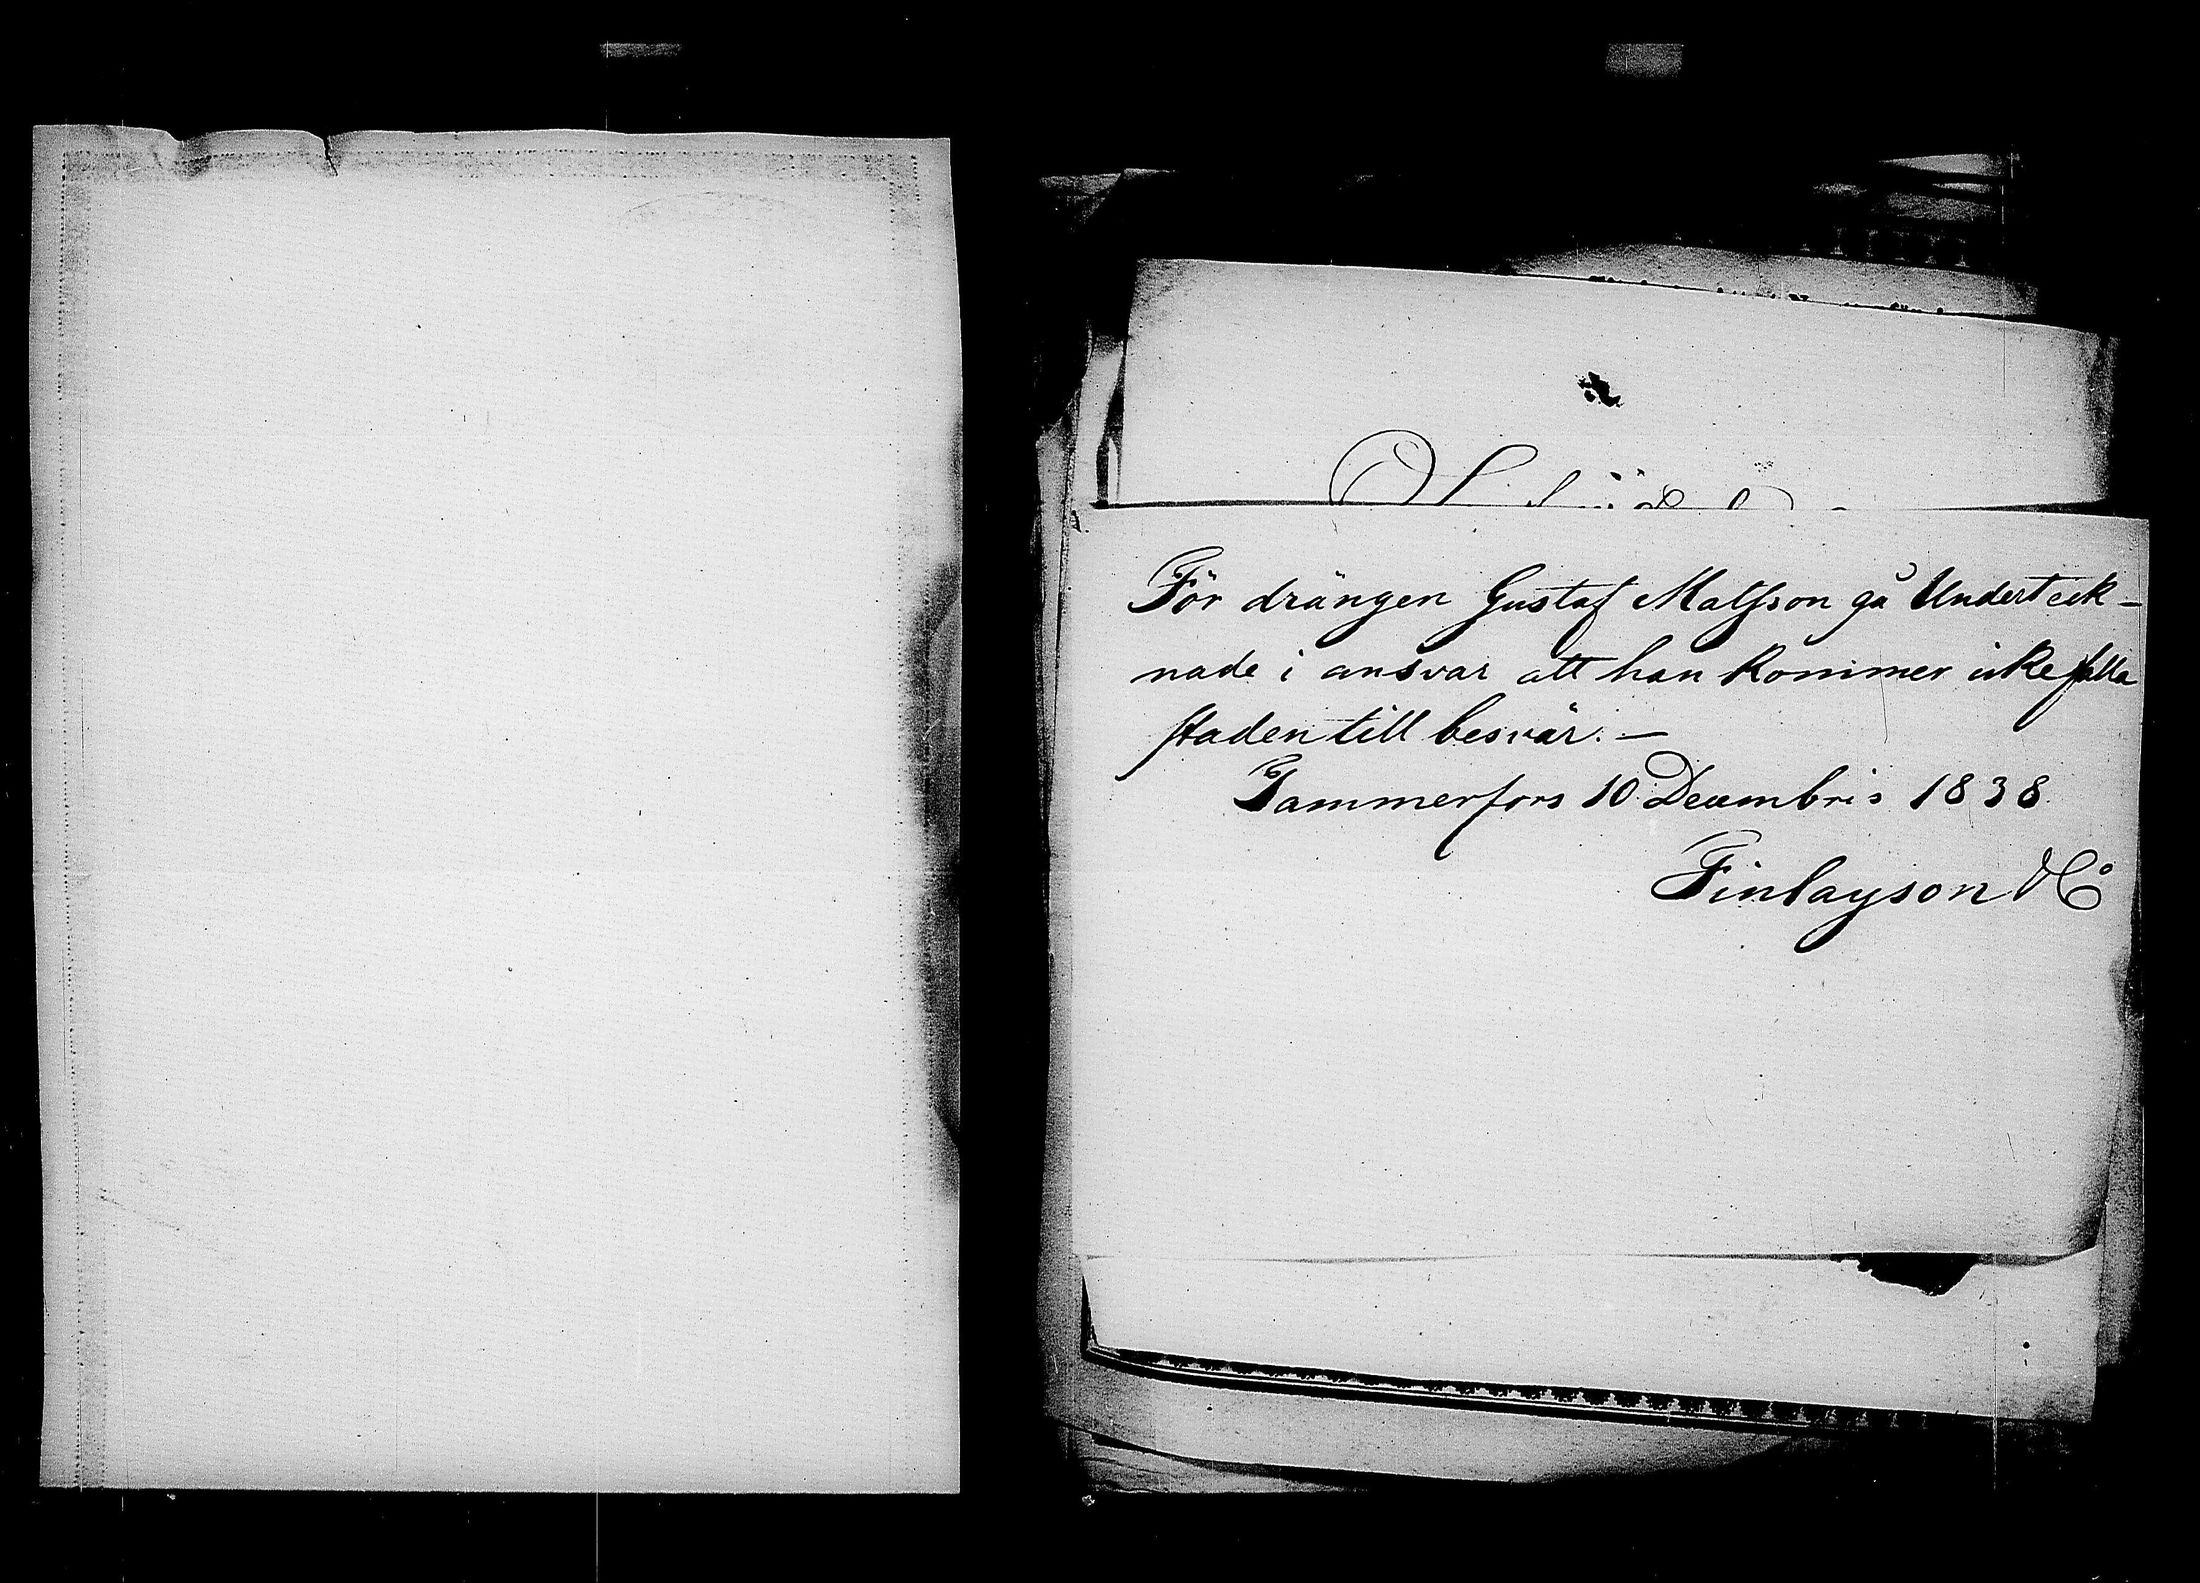 För drängen Gustaf Matsson gå Underteck-
nade i ansvar att han kommer icke falla
staden till besvär. —
Tammerfors 10 Decembris 1838
Finlayson & Co